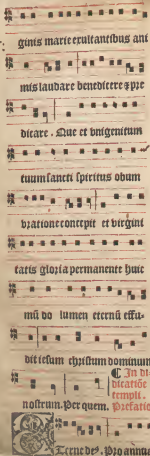 ginis marie exultantibus ani
mis laudare benedicere & pre
dicare. Que et vnigenitum
tuum sancti spiritus obum
bratione concepit et virgini
tatis gloria permanente huic
mūdo lumen eternū effu-
dit iesum christum dominum
nostrum. Per quem.
¶ In di
dicatiōe
templi.
Prefatio
Eterne de9. Pro annua